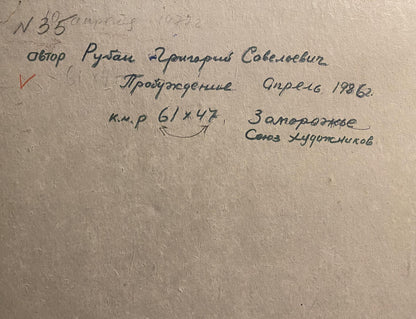 N 35 апреля 1977г
автор Рубан Григорий Савельевич
Пробуждение Апрель 1986г.
к.м.р 61 x 47. Запорожье
Союз художников